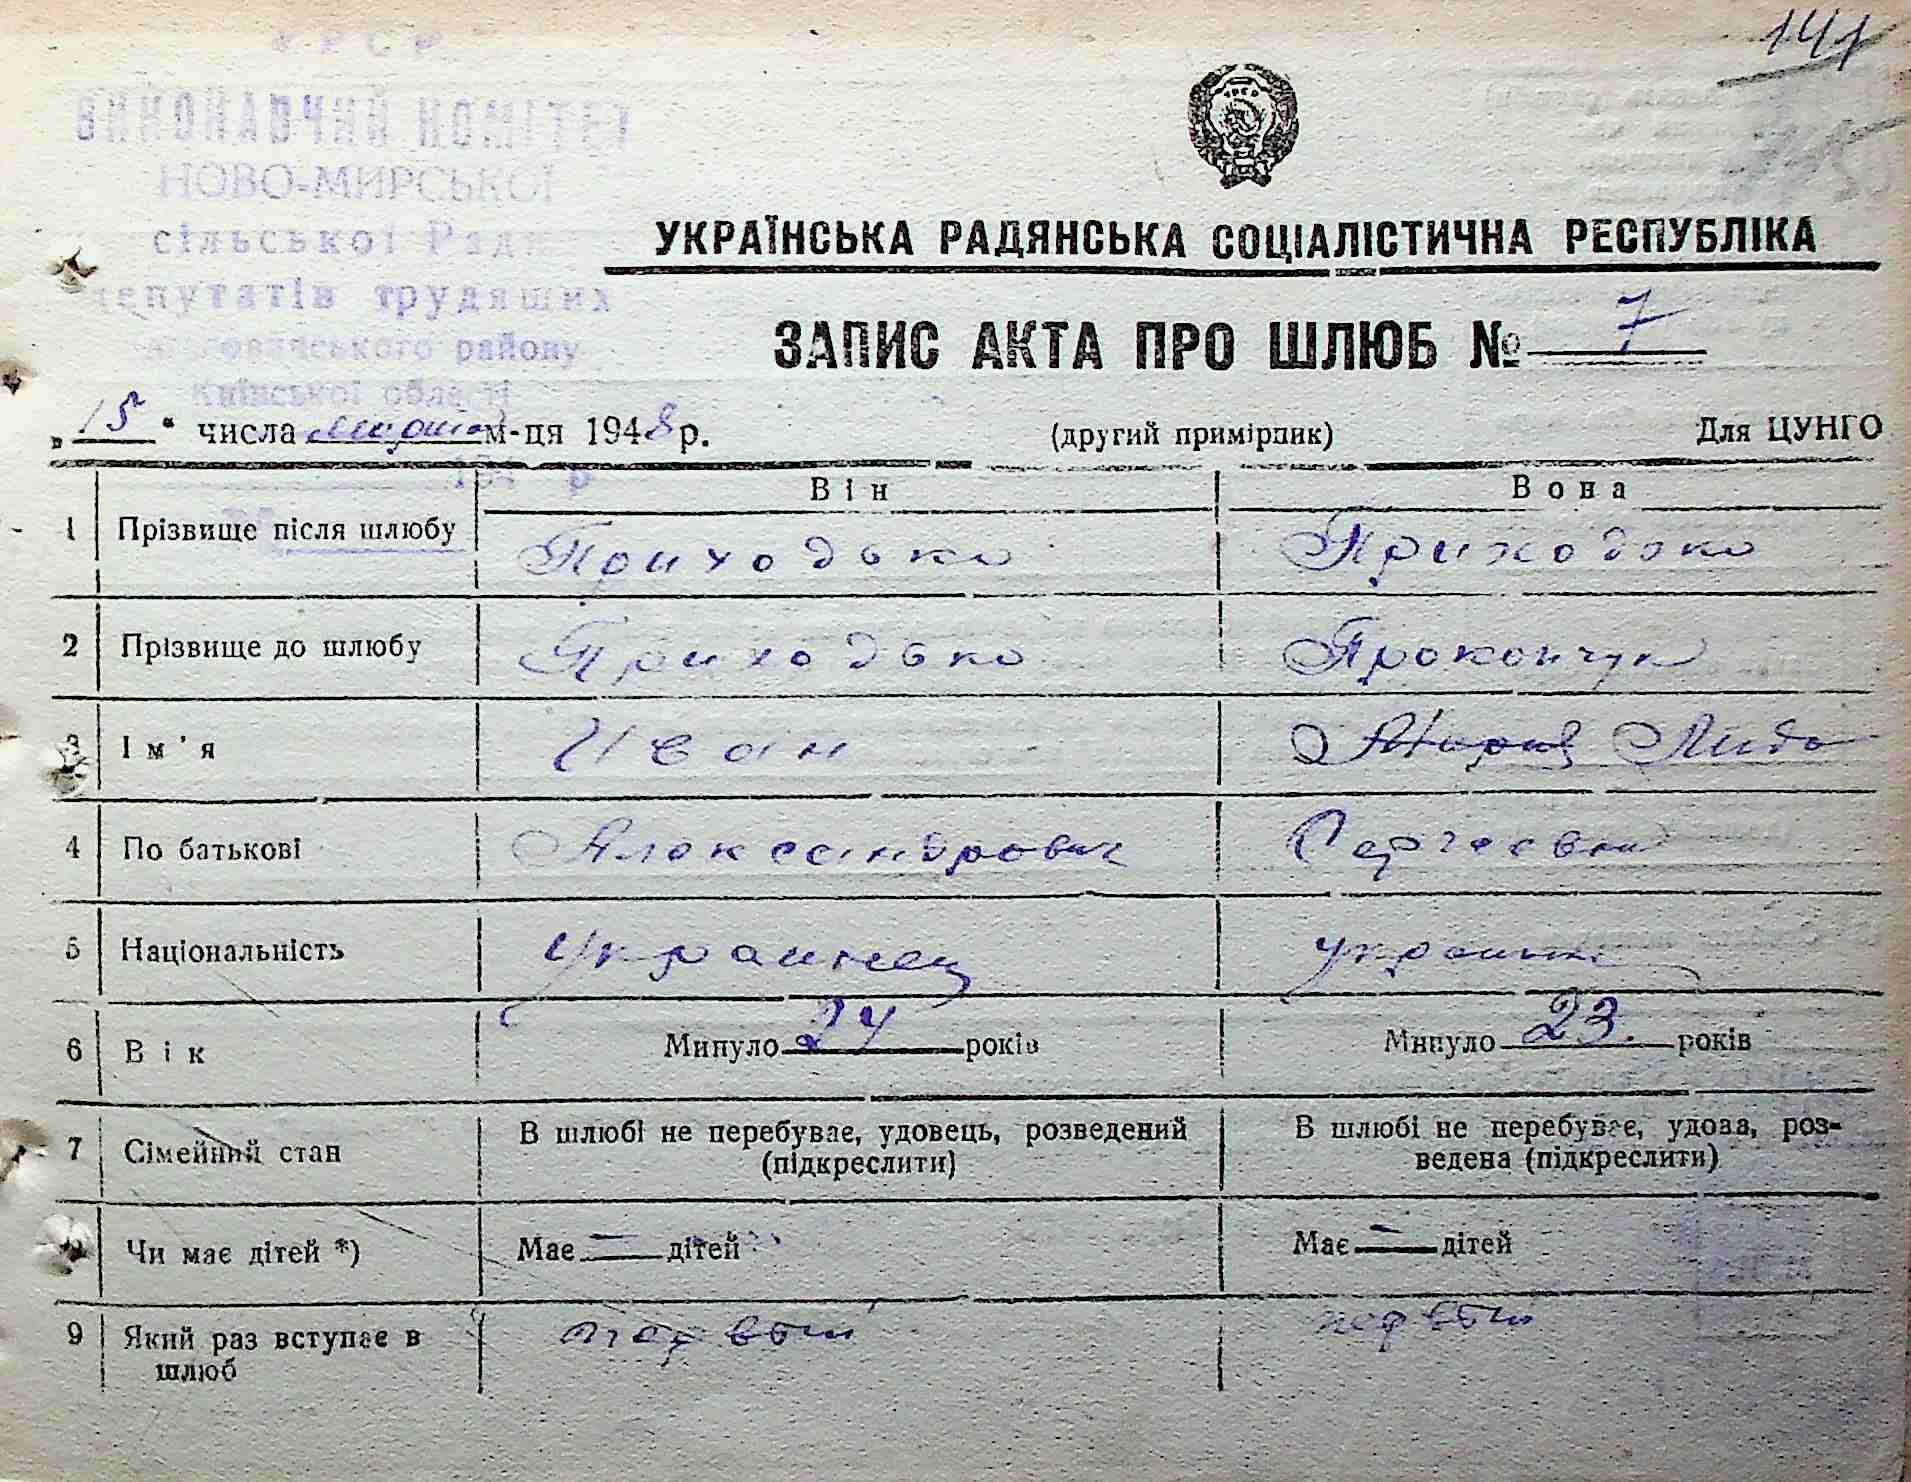 141
УРСР
ВИКОНАВЧИЙ КОМІТЕТ
НОВО-МИРСЬКОЇ
сільської Ради
депутатів трудящих
району
Київської області
УКРАЇНСЬКА РАДЯНСЬКА СОЦІАЛІСТИЧНА РЕСПУБЛІКА
ЗАПИС АКТА ПРО ШЛЮБ № 7
„15“ числа марта м-ця 1948 р. (другий примірник) Для ЦУНГО
194 р
Він Вона
1 Прізвище після шлюбу Приходько Приходько
2 Прізвище до шлюбу Приходько Прокопчук
3 Ім'я Иван Мария Лида
4 По батькові Александрович Сергеевна
5 Національність Украинец украинка
6 Вік Минуло 24 років Минуло 23. років
7 Сімейний стан В шлюбі не перебуває, удовець, розведений (підкреслити) В шлюбі не перебуває, удова, роз-
ведена (підкреслити)
8 Чи має дітей *) Має — дітей Має — дітей
9 Який раз вступає в шлюб первый первый